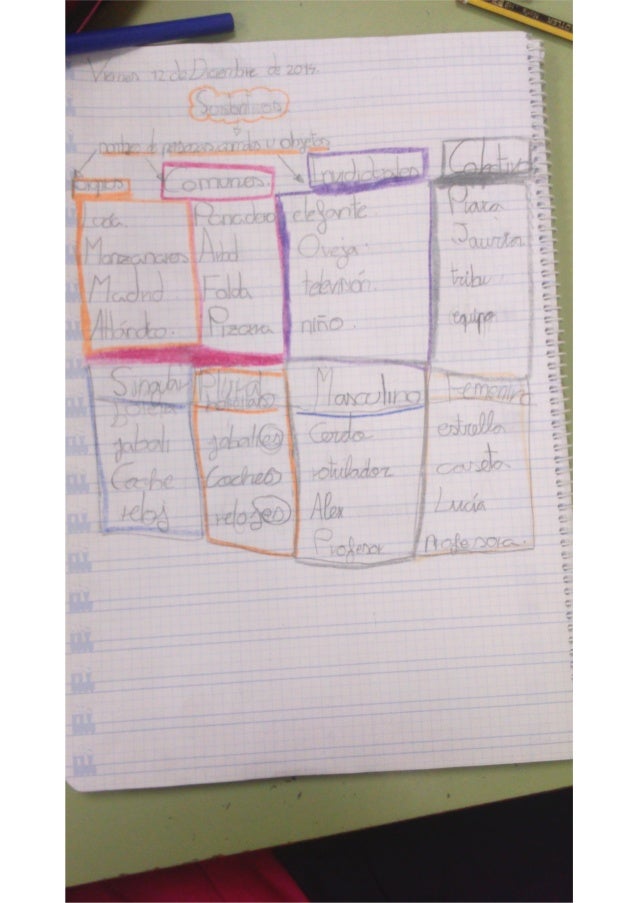 Viernes 12 de Diciembre de 2014.
Sustantivos
nombre de personas animales u objetos
Propios
Comunes.
Individuales
Colectivo
Manzanares
Madrid
Atlántico.
Panadero
Arbol
Falda
Pizarra
elefante.
Oveja.
televisión.
niño.
Piara
Jauría
tribu
equipo
Singular
jabali
Coche
reloj
Plural
jabalies
Coches
relojes
Masculino
Cerdo
rotulador
Alex
Profesor
Femenino
estrella
careta
Lucía
Profesora.